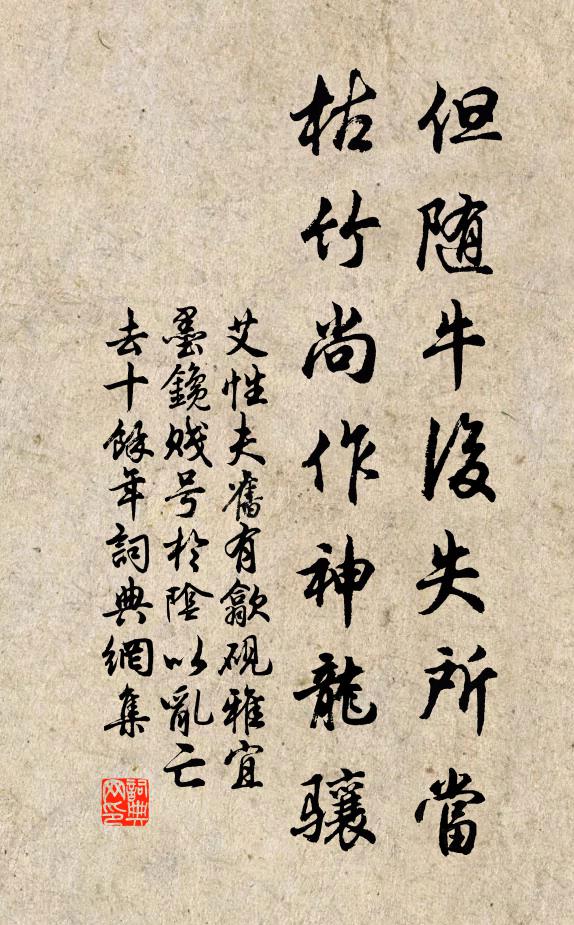 但随牛後失所當
枯竹尚作神龍驤
艾性夫舊有歙硯雅宜
墨鑱贱号於陰以亂亡
去十餘年詞典網集
詞典
网印